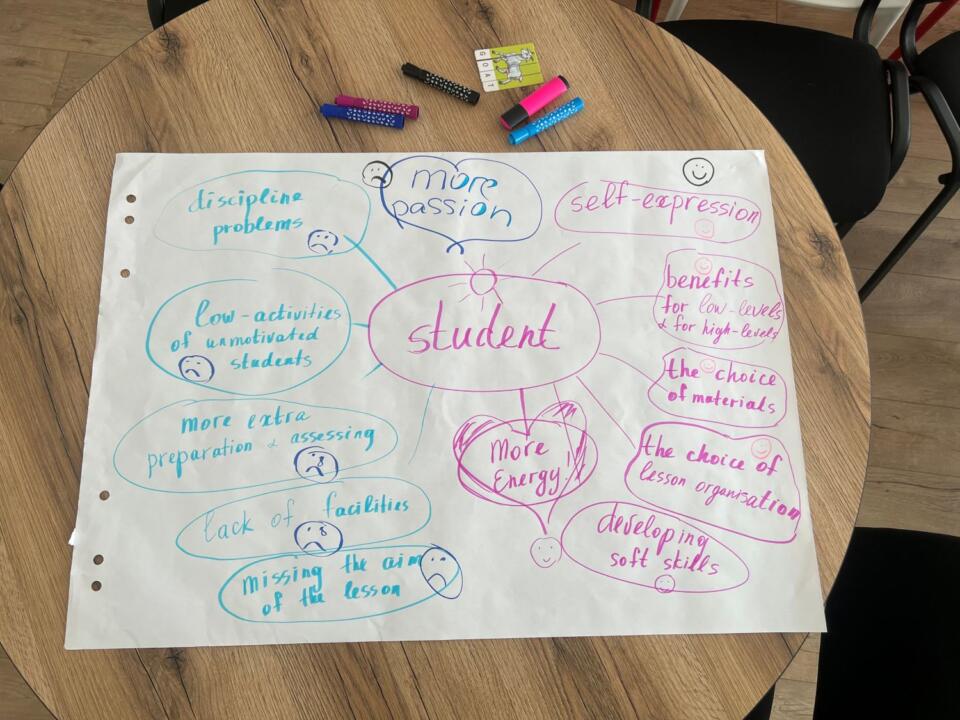 GOAT
more
passion
discipline
problems
self-expression
low-activities
of unmotivated
students
student
benefits
for low-levels
& for high-levels
the choice
of materials
more extra
preparation & assessing
More
Energy!
the choice of
lesson organisation
lack of facilities
developing
soft skills
missing the aim
of the lesson